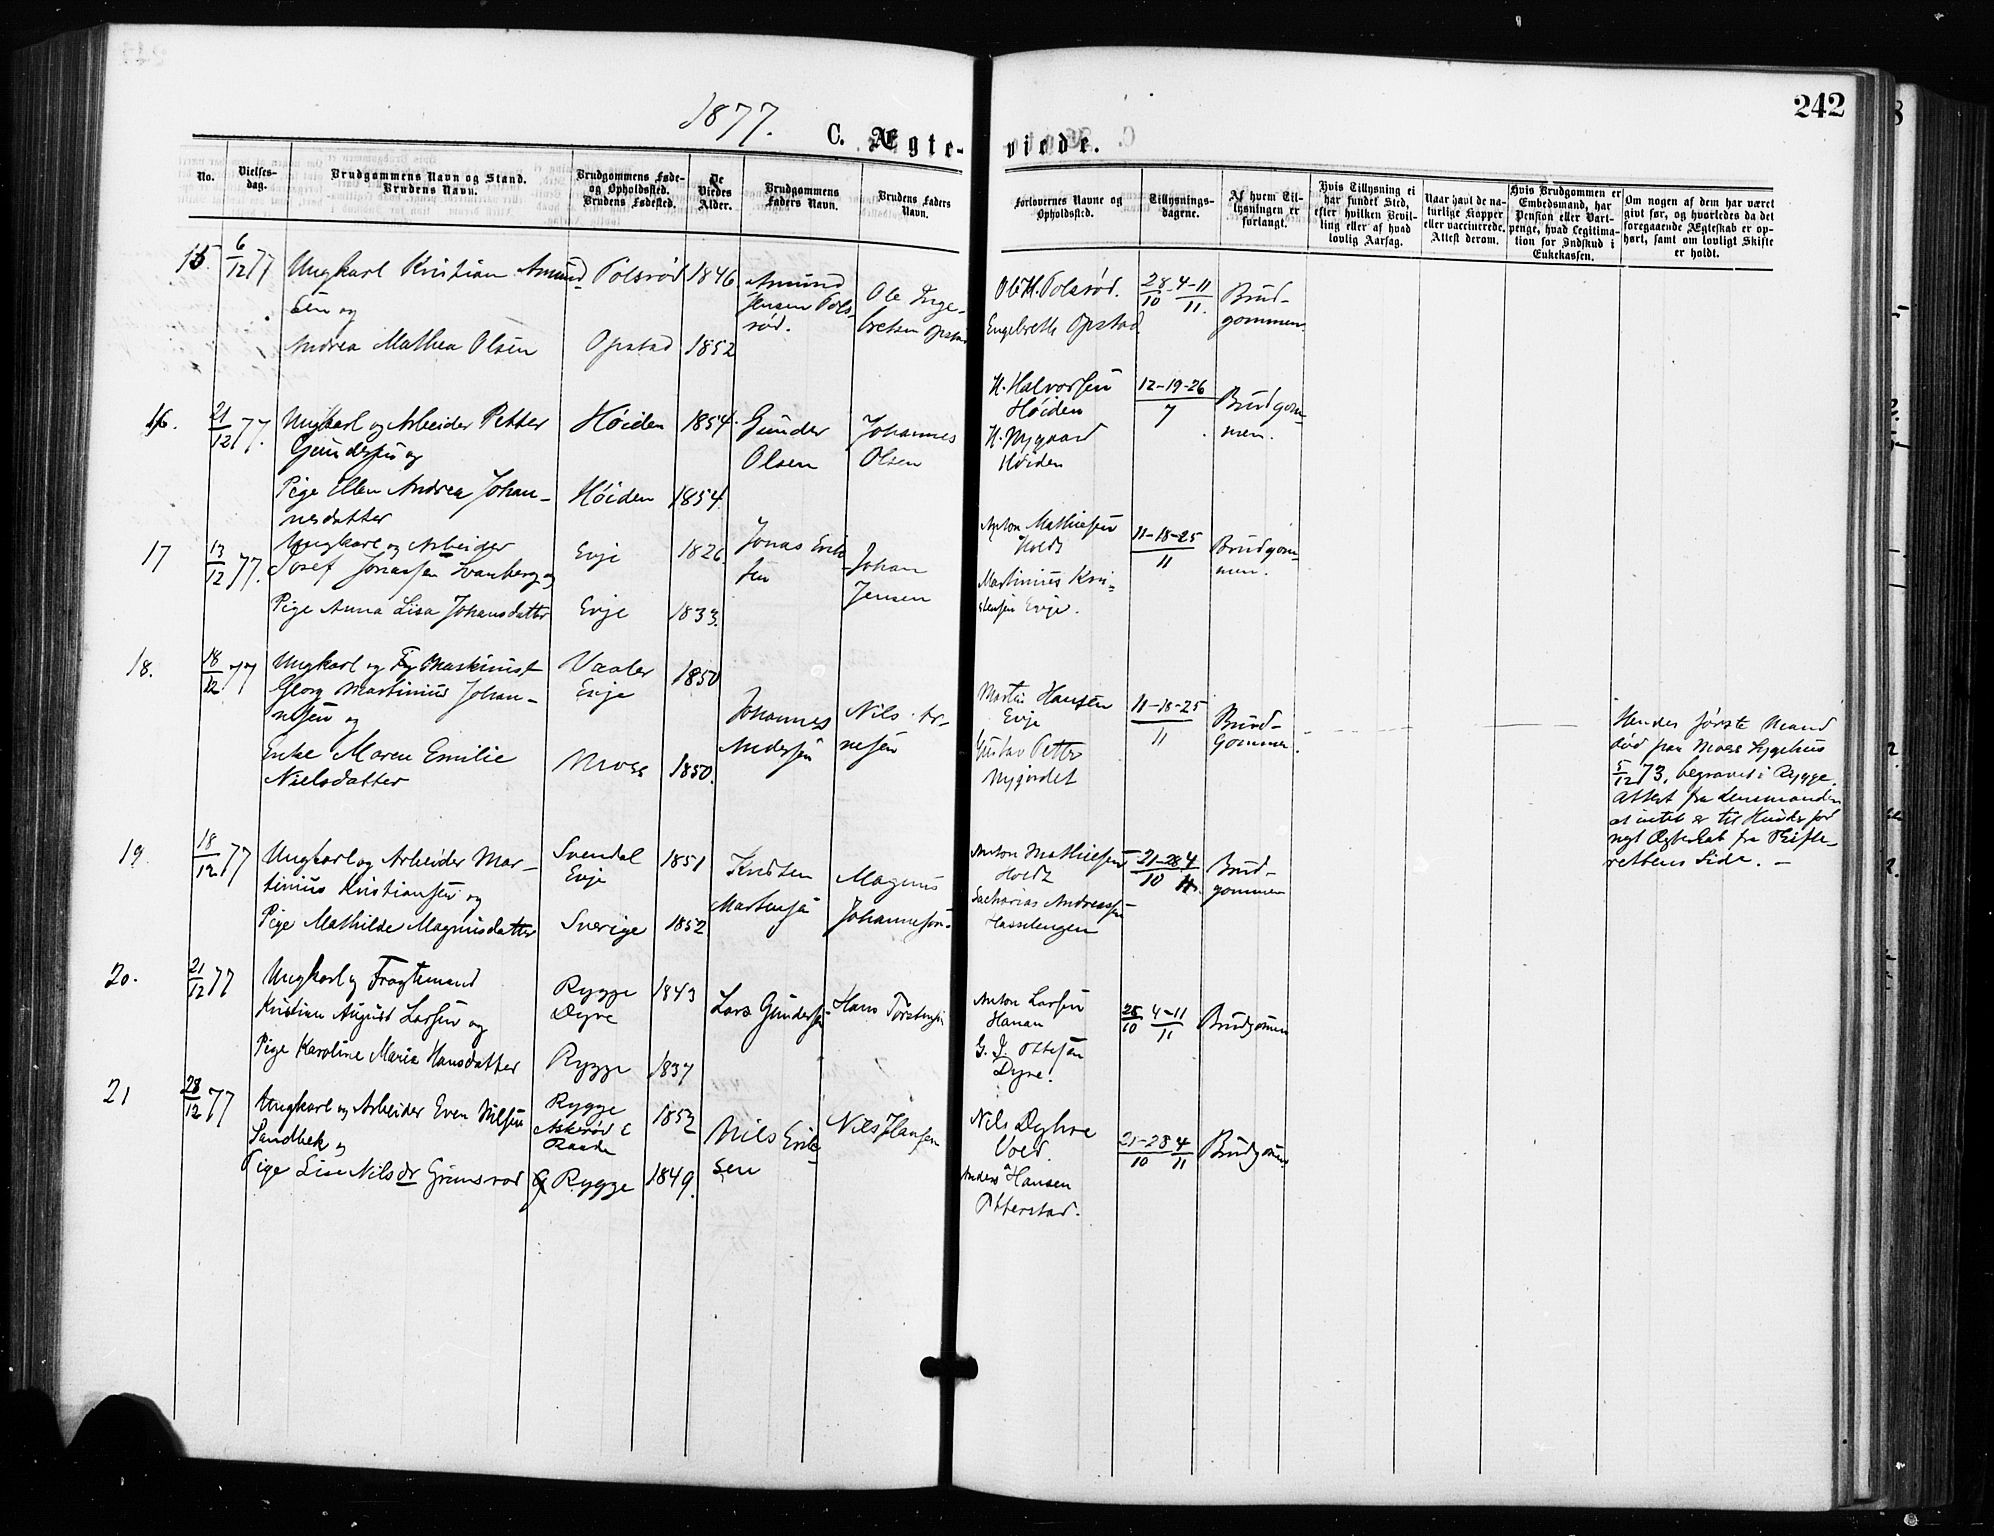 242
1877.
C. Ægte-viede.
No.
Vielses-
dag.
Brudgommens Navn og Stand.
Brudens Navn.
Brudgommens Føde-
og Opholdssted.
Brudens Fødested.
De
Viedes
Alder.
Brudgommens
Faders Navn.
Brudens Faders
Navn.
Forlovernes Navne og
Opholdssted.
Tillysnings-
dagene.
Af hvem Til-
lysningen er
forlangt.
Hvis Tillysning ei
har fundet Sted,
efter hvilken Bevil-
ling eller af hvad
lovlig Aarsag.
Naar havt de na-
turlige Kopper
eller vaccinerede.
Attest derom.
Hvis Brudgommen er
Embedsmand, har
Pension eller Vart-
penge, hvad Legitima-
tion for Indskud i
Enkekassen.
Om nogen af dem har været
givt før, og hvorledes da det
foregaaende Ægteskab er op-
hørt, samt om lovligt Skifte
er holdt.
15. 6/12 77 Ungkarl Kristian Amund-
sen og
Polsrød 1846.
Andrea Mathea Olsen
Opstad 1852
Amund
Jensen Pols-
rød.
Ole Inge-
bretsen Opstad
Ole H. Polsrød.
Engebreth Opstad
28/10 4-11/11.
Brud-
gommen
16. 21/12 77. Ungkarl og Arbeider Petter
Gundersen og
Høiden 1854.
Pige Ellen Andrea Johan-
nesdatter
Høiden 1854
Gunder
Olsen
Johannes
Olsen
H. Halvorsen
Høiden
H. Nygaard
Høiden
12-19-26
7
Brudgom-
men.
17 13/12 77. Ungkarl og Arbeider
Josef Jonassen Svanberg og
Evje 1826.
Pige Anna Lisa Johansdatter
Evje 1833.
Jonas Erik-
sen
Johan
Jensen
Anton Mathiesen
Holdt
Martinius Kri-
stensen Evje.
11-18-25
11
Brudgom-
men.
18. 18/12 77 Ungkarl og Maskinist
Georg Martinius Johan-
nesen og
Vaaler
Evje
1850
Enke Maren Emilie
Nielsdatter
Moss 1850.
Johannes
Andersen
Nils Ar-
nesen
Martin Hansen
Evje
Gustav Petter
Nygjerdet
11-18-25
11
Brud-
gommen.
Hendes første Mand
død paa Moss Sygehus
5/12 73, begravet i Rygge.
Attest fra Lensmanden
at intet er til Hinder for
nyt Ægteskab fra Skifte-
rettens Side. –
19. 18/12 77 Ungkarl og Arbeider Mar-
tinius Kristiansen og
Svendal
Evje
1851
Pige Mathilde Magnusdatter
Sverige 1852
Martensen
Magnus
Johannesen.
Anton Mathiesen
Holdt
Zacharias Andreassen
Hasselengen
21-28/10 4/11.
Brud-
gommen
20. 21/12 77 Ungkarl og Fragtemand
Kristian August Larsen og
Rygge
Dyre
1843
Pige Karoline Maria Hansdatter
Rygge 1837
Lars Gundersen
Hans Torstensen
Anton Larsen
Hanan
G. J. Ottesen
Dyre.
28/10 4-11/11
Brudgommen
21 28/12 77 Ungkarl og Arbeider Even Nilsen
Sandbek og
Rygge
Askerød i
Raade
1852
Pige Lise Nilsdr Grimsrød
Rygge 1849.
Nils Erik-
sen
Nils Hansen
Nils Dyhre
Vold
Anders Hansen
Otterstad.
21-28/10 4/11
Brudgommen